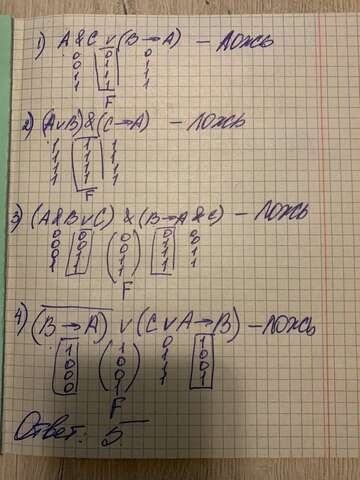 1) A & C ∨ (B → A) – ЛОЖЬ
0 0 0
0 1 1
1 1 1
1 1 1
F
2) (A∨B) & (C → A) – ЛОЖЬ
1 1 1
1 1 1
1 1 1
1 1 1
F
3) (A & B ∨ C) & (B → A & C) – ЛОЖЬ
0 0 0 0 0
0 0 0 1 1
0 0 1 1 1
1 1 1 1
F
4) (B → A) ∨ (C ∨ A → B) – ЛОЖЬ
1 1 0 1
0 0 1 0
0 0 1 0
0 1 1 1
F
Ответ: 5